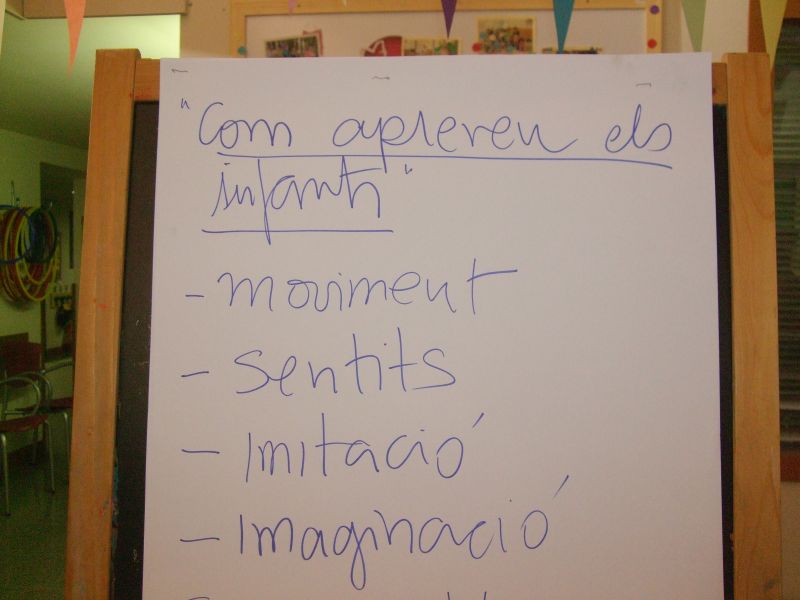 "Com apreren els
infants"
- moviment
- Sentits
- Imitació
- Imaginació